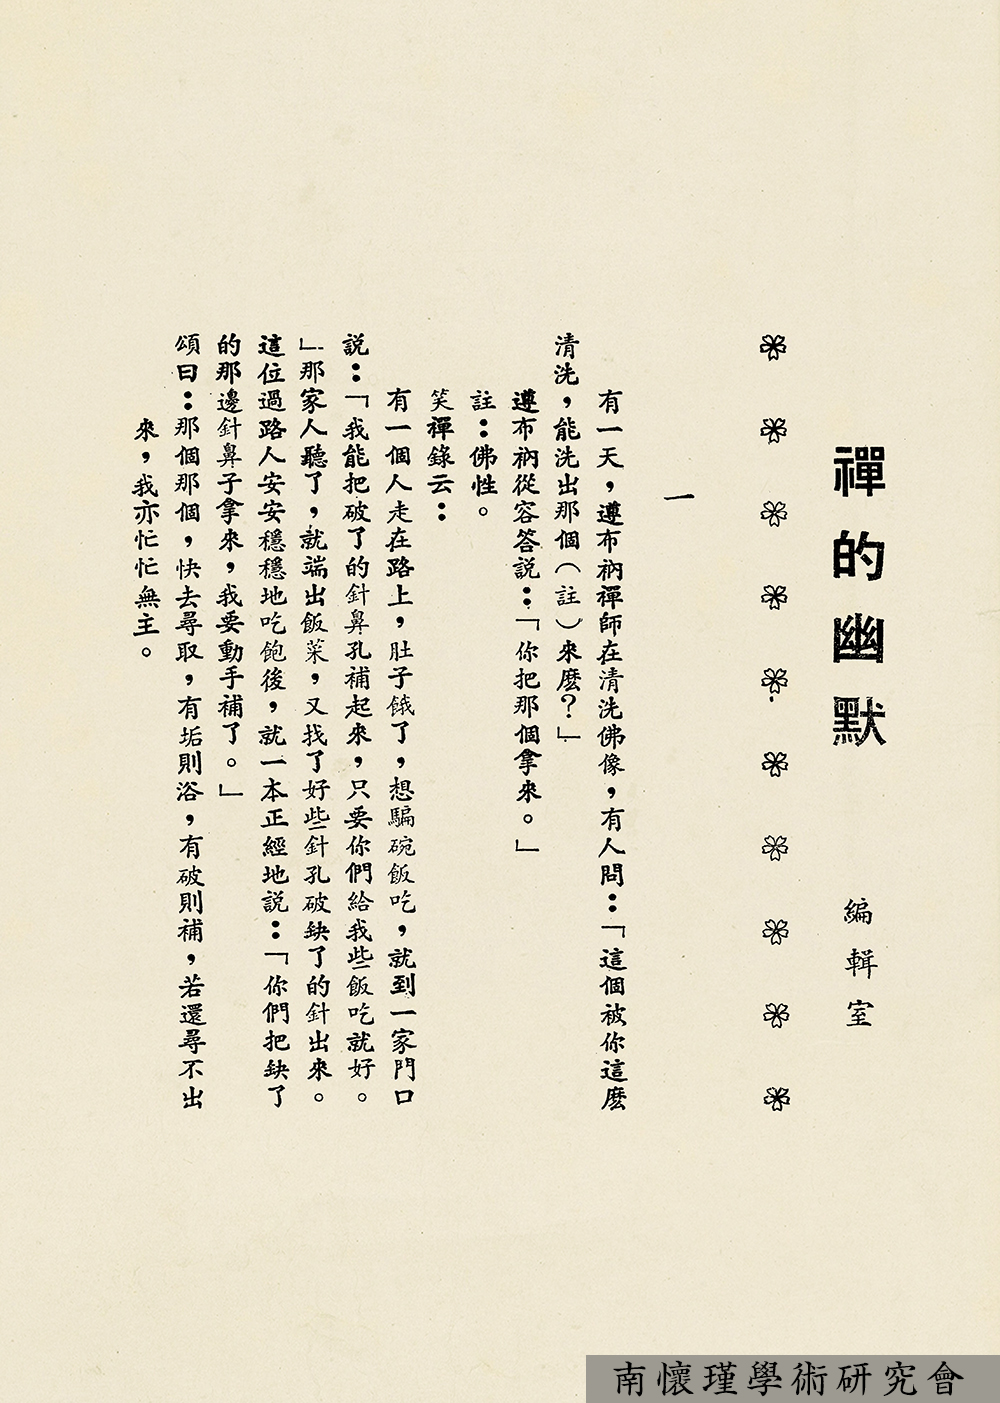 禪的幽默
編輯室
一
有一天，遵布衲禪師在清洗佛像，有人問：「這個被你這麼
清洗，能洗出那個（註）來麼？」
遵布衲從容答說：「你把那個拿來。」
註：佛性。
笑禪錄云：
有一個人走在路上，肚子餓了，想騙碗飯吃，就到一家門口
説：「我能把破了的針鼻孔補起來，只要你們給我些飯吃就好。
」那家人聽了，就端出飯菜，又找了好些針孔破缺了的針出來。
這位過路人安安穩穩地吃飽後，就一本正經地説：「你們把缺了
的那邊針鼻子拿來，我要動手補了。」
頌曰：那個那個，快去尋取，有垢則浴，有破則補，若還尋不出
來，我亦忙忙無主。
南懷瑾學術研究會